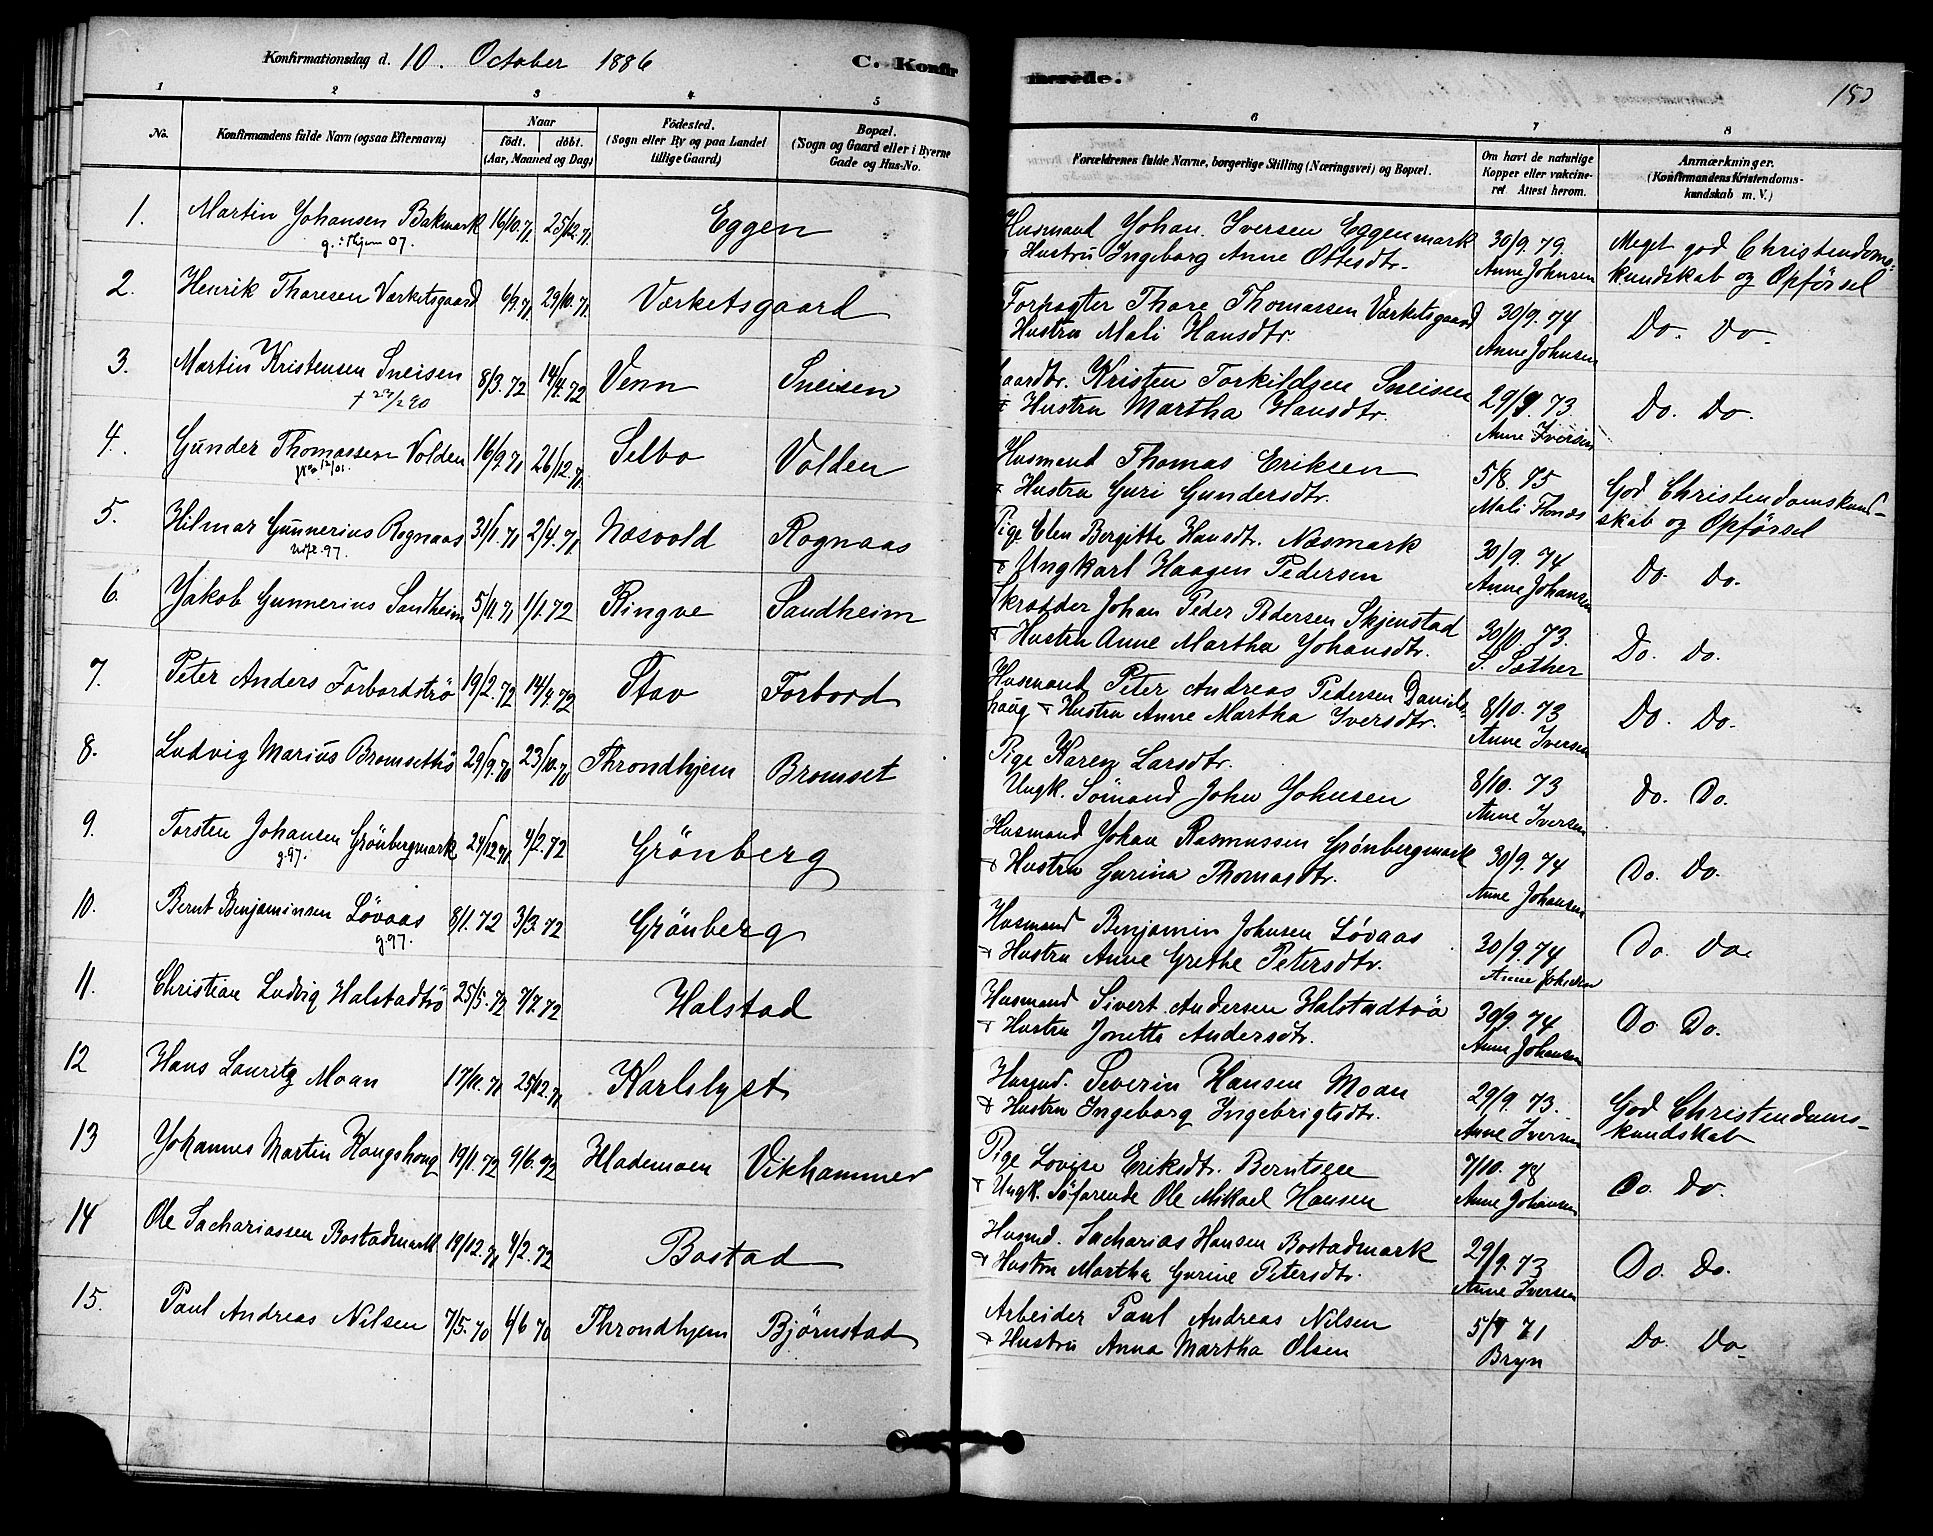 Konfirmationsdag d. 10. October 1886
C. Konfirmerede.
1 2 3 4 5 6 7 8
No.
Konfirmandens fulde Navn (ogsaa Efternavn)
Naar
födt. döbt.
(Aar, Maaned og Dag)
Födested.
(Sogn eller By og paa Landet
tillige Gaard)
Bopæl.
(Sogn og Gaard eller i Byerne
Gade og Hus-No.
Forældrenes fulde Navne, borgerlige Stilling (Næringsvei) og Bopæl.
Om havt de naturlige
Kopper eller vakcine-
ret. Attest herom.
Anmærkninger.
(Konfirmandens Kristendoms-
kundskab m. V.)
1. Martin Johansen Bakmark 16/10.71 25/12.71 Eggen
Husmand Johan Iversen Eggenmark 30/9.79. Meget god Christendoms-
Hustru Ingeborg Anne Ottesdtr. Anne Johnsen kundskab og Opførsel
2. Henrik Tharesen Værketsgaard 6/9.71 29/10.71 Værketsgaard
Forpagter Thare Thomassen Værketsgaard 30/9.74 Do. Do.
Hustru Mali Hansdtr. Anne Johnsen
3. Martin Kristensen Sneisen 8/3.72 14/4.72 Venn Sneisen
Kristen Torkildsen Sneisen 29/9.73 Do. Do.
Hustru Martha Hansdtr. Anne Iversen
4. Gunder Thomassen Volden 16/9.71 26/12.71 Selbo Volden
Husmand Thomas Eriksen 5/8.75 God Christendomskund-
Hustru Guri Gundersdtr. Mali skab og Opførsel
5. Hilmar Gunnerius Rognaas 31/1.71 2/4.71 Næsvold Rognaas
Pige Elen Bergitte Hansdtr. Næsmark 30/9.74 Do. Do.
Ungkarl Haagen Pedersen Anne Johansen
6. Jakob Gunnerius Sandheim 5/11.71 1/1.72 Ringve Sandheim
Skrædder Johan Peder Pedersen Skjenstad 30/10.73. Do. Do.
Hustru Anne Martha Johansdtr. S. Sæther
7. Peter Anders Forbordströ 19/2.72 14/4.72 Stav Forbord
Husmand Peter Andreas Pedersen Daniels- 8/10.73 Do. Do.
haug Hustru Anne Martha Iversdtr. Anne Iversen
8. Ludvig Marius Bromsethö 29/9.70 23/10.70 Throndhjem Bromset
Pige Karen Larsdtr. 8/10.73 Do. Do.
Ungk. Sömand John Johnsen Anne Iversen
9. Torsten Johansen Grönbergmark 24/12.71 4/2.72 Grönberg
g.97.
Husmand Johan Rasmussen Grönbergmark 30/9.74 Do. Do.
Hustru Gurina Thomasdtr. Anne Johansen
10. Bernt Benjaminsen Lövaas 8/1.72 3/3.72 Grönberg
g.97.
Husmand Benjamin Johnsen Lövaas 30/9.74 Do. Do.
Hustru Anne Grethe Petersdtr. Anne Johansen
11. Christian Ludvig Halstadtrö 25/5.72 7/7.72 Halstad
Husmand Sivert Andersen Halstadtrö 30/9.74 Do. Do.
Hustru Jonetta Andersdtr. Anne Johansen
12 Hans Lauritz Moan 17/11.71 25/12.71 Karlslyst
Husmd. Severin Hansen Moan 29/9.73. God Christendoms-
Hustru Ingeborg Ingebrigtsdtr. Anne Iversen kundskab
13 Johannes Martin Haugshaug 19/1.72 9/6.72 Hademoen Vikhammer
Pige Lovise Eriksdtr. Berntsen 7/10.78 Do. Do.
Ungk. Söfarende Ole Mikael Hansen Anne Johansen
14 Ole Sachariassen Bostadmark 19/12.71 4/2.72 Bostad
Husmd. Sacharias Hansen Bostadmark 29/9.73 Do. Do.
Hustru Martha Gurine Petersdtr. Anne Iversen
15. Paul Andreas Nilsen 7/5.70 6/6 70 Throndhjem Björnstad
Arbeider Paul Andreas Nilsen 71 Do. Do.
Hustru Anna Martha Olsen Bryn